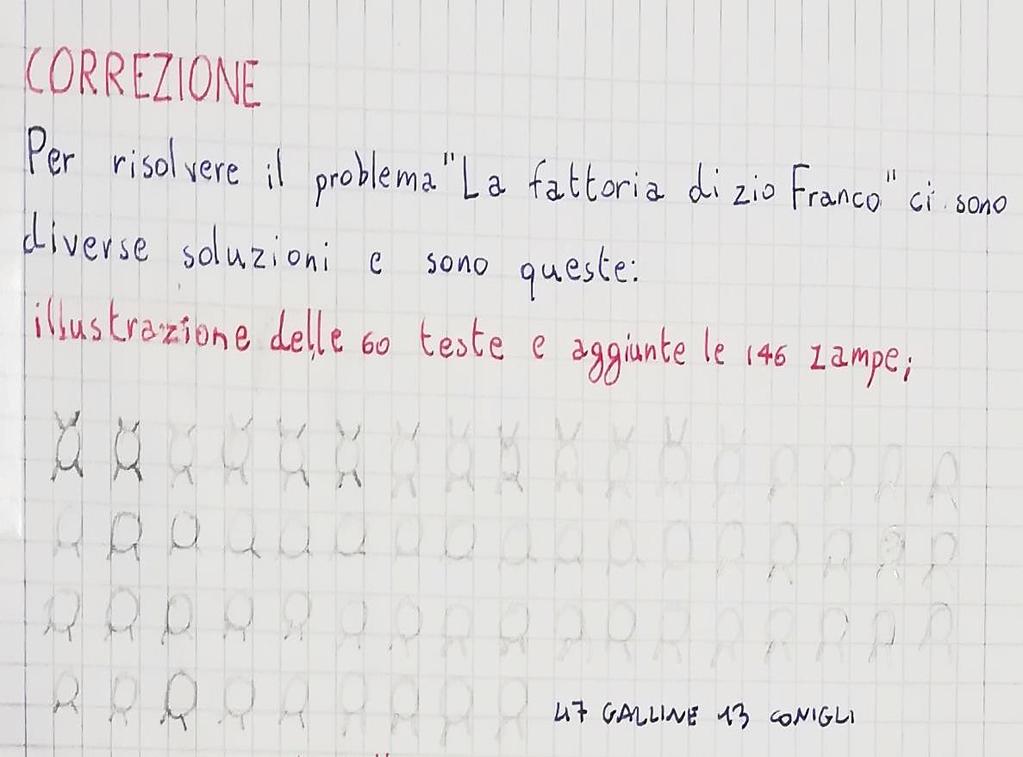 CORREZIONE
Per risolvere il problema "La fattoria di zio Franco" ci sono
diverse soluzioni e sono queste:
illustrazione delle 60 teste e aggiunte le 146 zampe;
47 GALLINE 13 CONIGLI